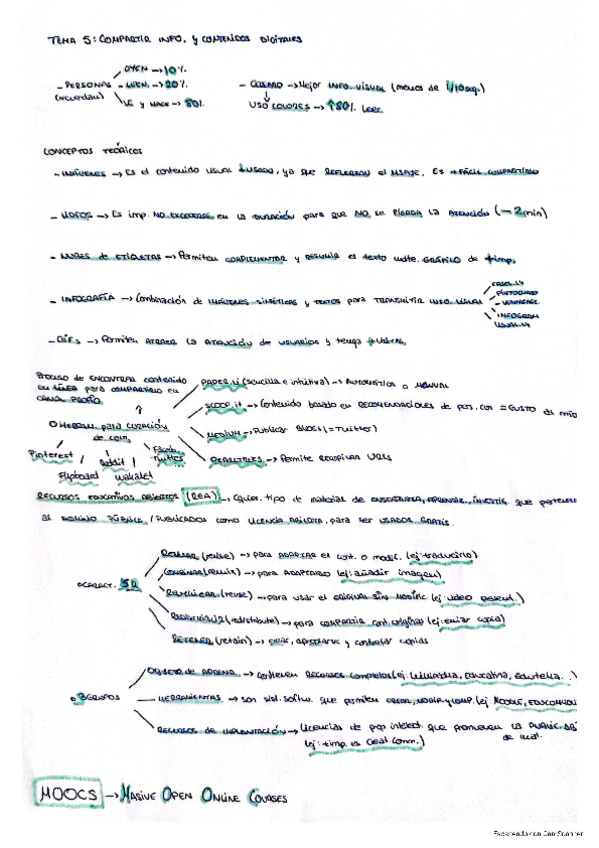 TEMA 5: COMPARTIR INFO. y CONTENIDOS DIGITALES
OYEN → 10%
- PERSONAS - LEEN → 20%
(recuerdan)
LE y HACE → 80%
→ Mejor INFO. VISUAL (menos de 1/10 seg.)
USO COLORES → ↑80% Leer.
CONCEPTOS TEÓRICOS
- IMÁGENES → Es el contenido visual usado, ya que REFUERZAN el MSAJE. Es + FÁCIL COMPARTIRLO
- VIDEOS → Es imp. NO EXCEDERSE en la DURACIÓN para que NO se PIERDA LA ATENCIÓN (- 2 min)
- NUBES de ETIQUETAS → Permiten COMPLEMENTAR y RESUMIR el texto mdte. GRÁFICO de + imp.
- INFOGRAFÍA → Combinación de IMÁGENES SINTÉTICAS y TEXTOS para TRANSMITIR INFO. VISUAL
EASEL.LY
PIKTOCHART
VENNGAGE
INFOGRAM
VISUAL.LY
- GIFS → Permiten ATRAER LA ATENCIÓN de usuarios y tenga + visitas.
Proceso de ENCONTRAR contenido
en LÍNEA para COMPARTIRLO en
CANAL PROPIO
PAPER.li (sencilla e intuitiva) → AUTOMÁTICA o MANUAL
SCOOP.it → Contenido basado en RECOMENDACIONES de pers. con = GUSTO al mío
MEDIUM → Publicar BLOGS (= Twitter)
→ Permite recopilar URLS
O HERRAM. para CURACIÓN
de con.
Pinterest
Reddit
Faceb.
Twitter
Flipboard
Wakelet
RECURSOS EDUCATIVOS ABIERTOS (REA) → Cquier. tipo de material de ENSEÑANZA, APRENDIZ., INVESTIG. que pertenece
al DOMINIO PÚBLICO / PUBLICADOS como LICENCIA ABIERTA, para ser USADOS GRATIS.
CARACT. 5R
REVISAR (revise) → para ADAPTAR el cont. o modif. (ej: traducirlo)
COMBINAR (remix) → para ADAPTARLO (ej: añadir imagen)
REUTILIZAR (reuse) → para usar el ORIGINAL SIN MODIFIC (ej: video present.)
REDISTRIBUIR (redistribute) → para COMPARTIR cont. original (ej: enviar copia)
RETENER (retain) → crear, apropiarte y controlar copias
3 GRUPOS
→ Contienen RECURSOS completos (ej: Wikimedia, Educatina, Eduteka...)
HERRAMIENTAS → son sist. softw. que permiten CREAR, MODIF. y COMP. (ej MOODLE, EDUCOMMONS
RECURSOS DE IMPLANTACIÓN → Licencias de prop intelect. que promueven la PUBLIC. AB
de mat.
(ej: + imp. es Creat. Comm.)
MOOCS → MASIVE OPEN ONLINE COURSES
Escaneado con CamScanner